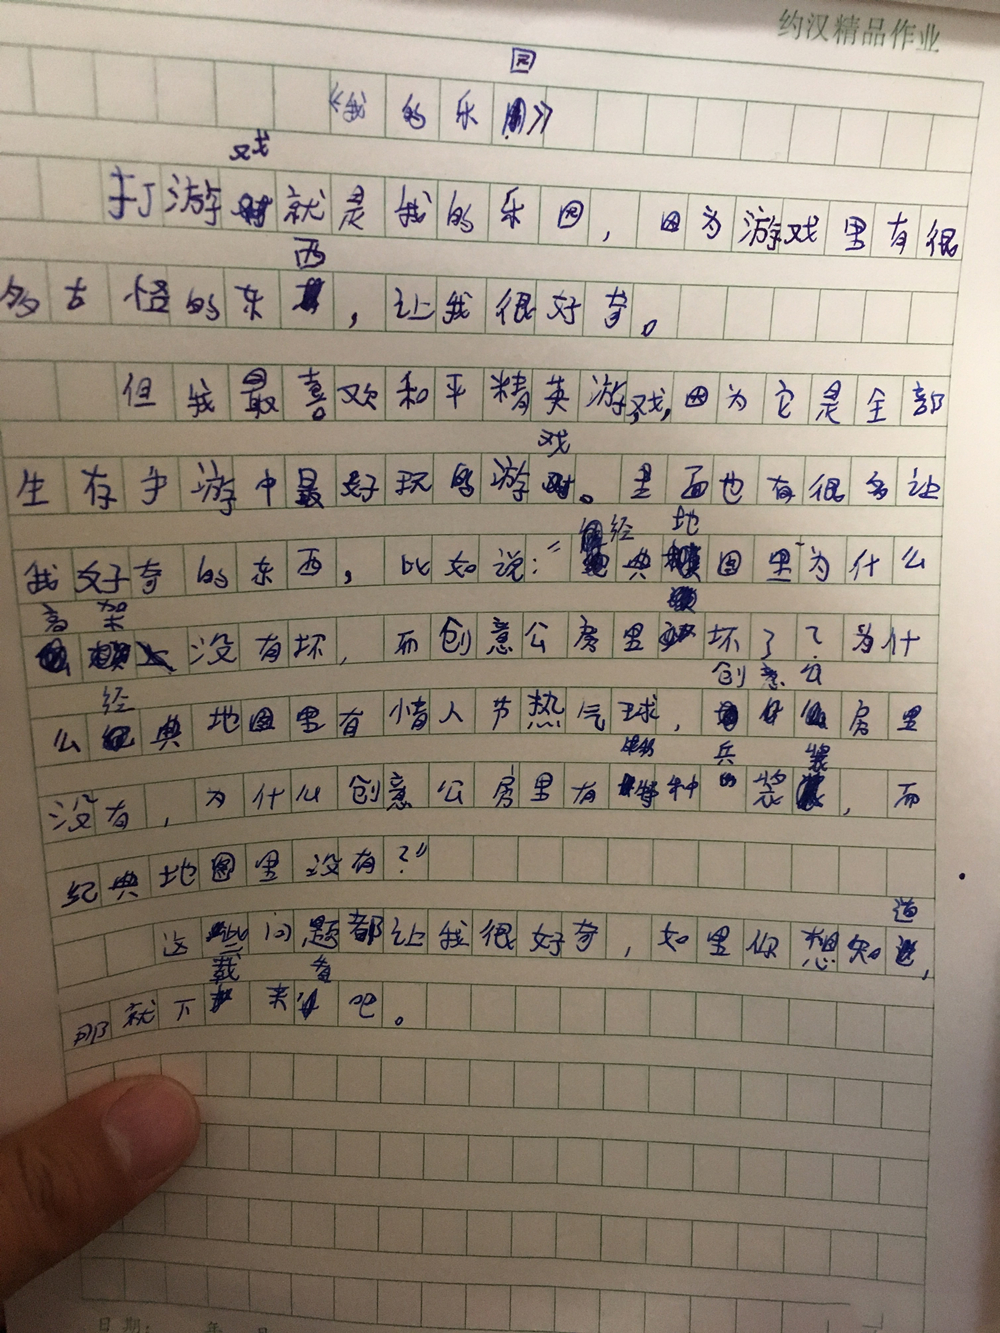 约汉精品作业
《我的乐园》
打游戏就是我的乐园，因为游戏里有很
多古怪的东西，让我很好奇。
但我最喜欢和平精英游戏，因为它是全部
生存手游中最好玩的游戏。里面也有很多让
我好奇的东西，比如说：“经典地图里为什么
高架没有坏，而创意公房里坏了？为什
么经典地图里有情人节热气球，创意公房里
没有，为什么创意公房里有特种兵的装，而
经典地图里没有？”
这些问题都让我很好奇，如里你想知道，
那就下载来看吧。
日期： 年 月